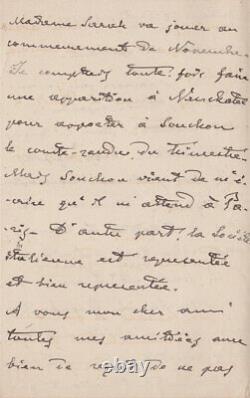 Madame Sarah va jouer au
commencement de Novembre.
Je comptais toute fois faire
une apparition à
pour apporter à Souchon
le compte-rendu du trimestre.
Mais Souchon vient de m'é-
crire qu'il m'attend à Pa-
ris - D'autre part, la Société
italienne est représentée
et bien représentée.
A vous mon cher ami
toutes mes amitiés avec
bien du regret de ne pas
© ebay.com